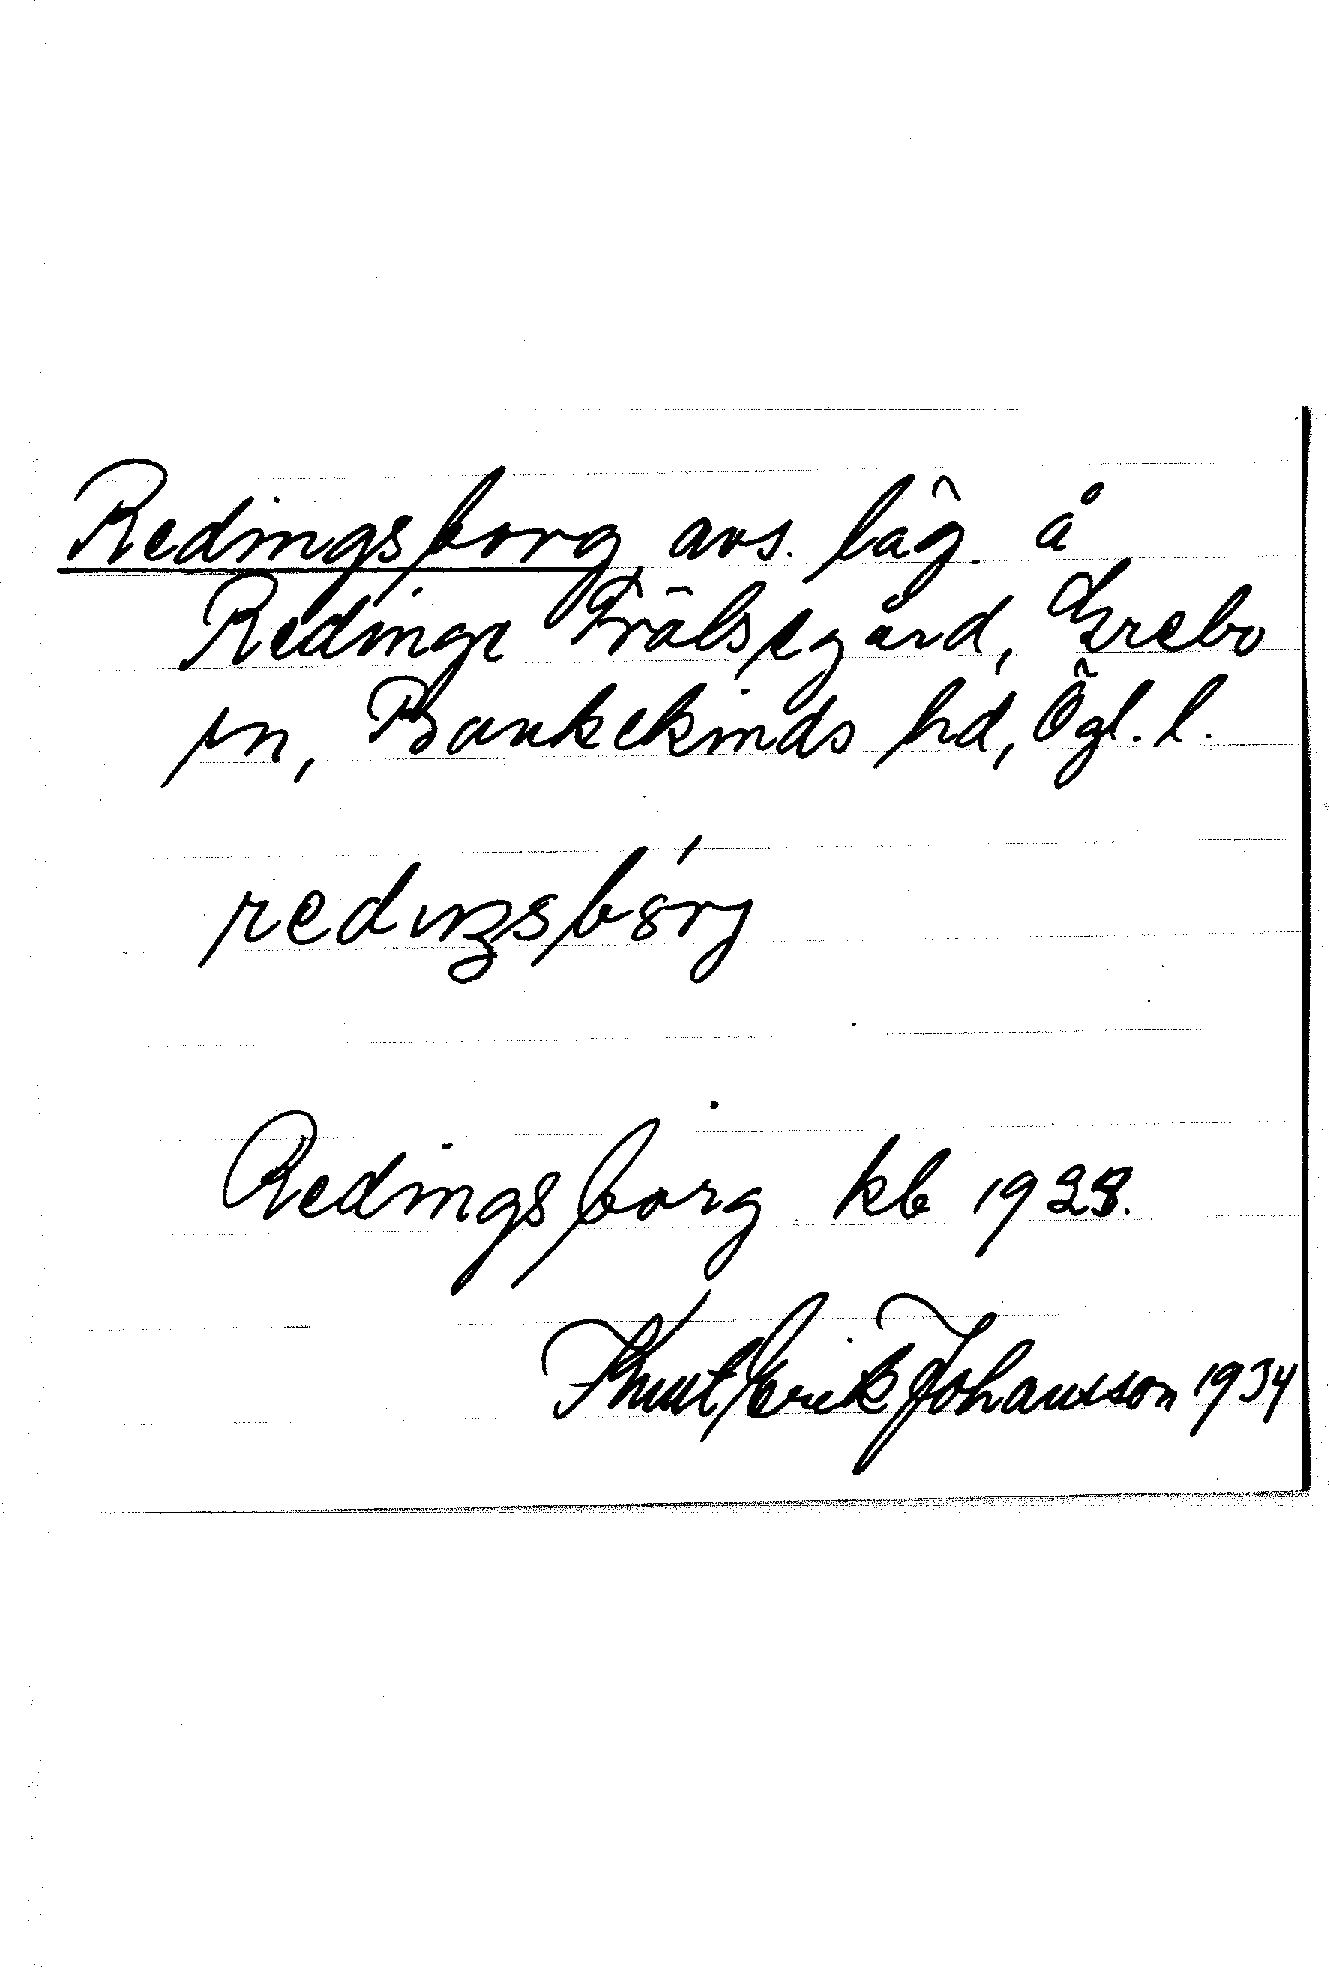 Redingsborg, avs. läg. å
Redinge Frälsegård, Grebo
sn, Bankekinds hd, Ögl. l.
redıŋsbórj
Redingsborg kb 1928.
Knut Erik Johansson 1934